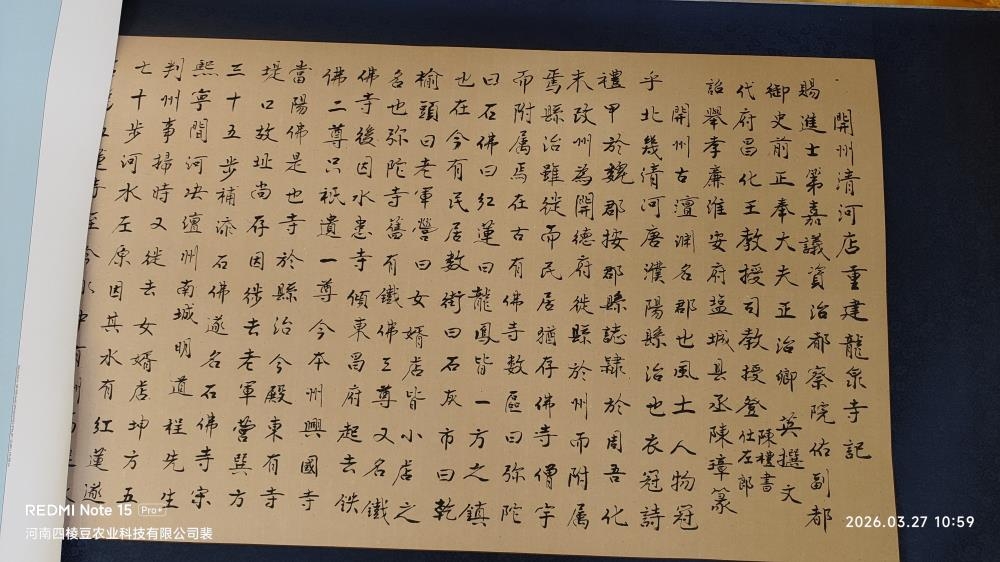 開州清河店重建龍泉寺記
賜進士第嘉議資治都察院佑副都
御史前正奉大夫正治卿 英撰文
代府昌化王教授司教授登仕左郎陳禮書
詔舉孝廉淮安府盐城县丞陳璋篆
開州古澶渊名郡也風土人物冠
乎北幾清河唐濮陽縣治也衣冠詩
禮甲於魏郡按郡縣誌隸於周吾化
末改州為開德府徙縣於州而附属
焉縣治雖徙而民居猶存佛寺僧宇
而附属焉在古有佛寺数區曰弥陀
曰石佛曰紅蓮曰龍鳳皆一方之鎮
也在今有民居数街曰石灰市曰乾
榆頭曰老軍營曰女婿店皆小店之
名也弥陀寺舊有鐵佛三尊又名鐵
佛寺後因水患寺傾東昌府起去铁
佛二尊只祇遺一尊今本州興國寺
當陽佛是也寺於縣治今殿東有寺
堤口故址尚存因徙去老軍营巽方
三十五步補添石佛遂名石佛寺宗
熙寧間河决澶州南城明道程先生
判州事掃時又徙去女婿店坤方五
七十步河水左原因其水有紅蓮遂
REDMI Note 15 Pro+
河南四棱豆农业科技有限公司裴
2026.03.27 10:59